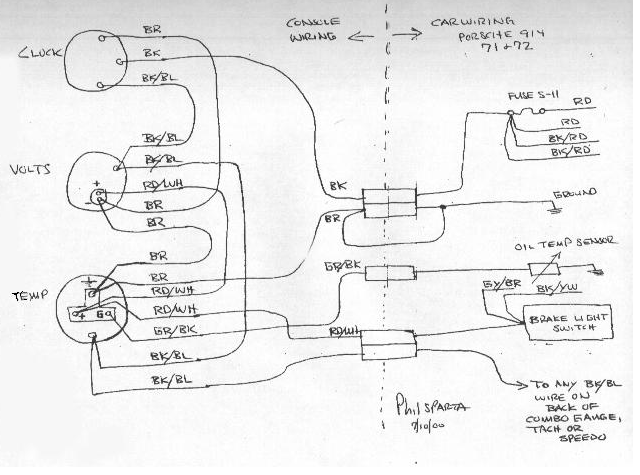 CONSOLE
WIRING
CAR WIRING
PORSCHE 914
71+72
CLOCK
BR
BK
BK/BL
FUSE S-11
RD
RD
BK/RD
BK/RD
VOLTS
BK/BL
BK/BL
+
RD/WH
-
BR
BR
BK
BR
GROUND
BR
BR
TEMP
RD/WH
+
G
RD/WH
GR/BK
BK/BL
BK/BL
GR/BK
OIL TEMP SENSOR
GY/BR
BK/YW
BRAKE LIGHT
SWITCH
RD/WH
TO ANY BK/BL
WIRE ON
BACK OF
COMBO GAUGE,
TACH OR
SPEEDO
Phil SPARTA
7/10/00